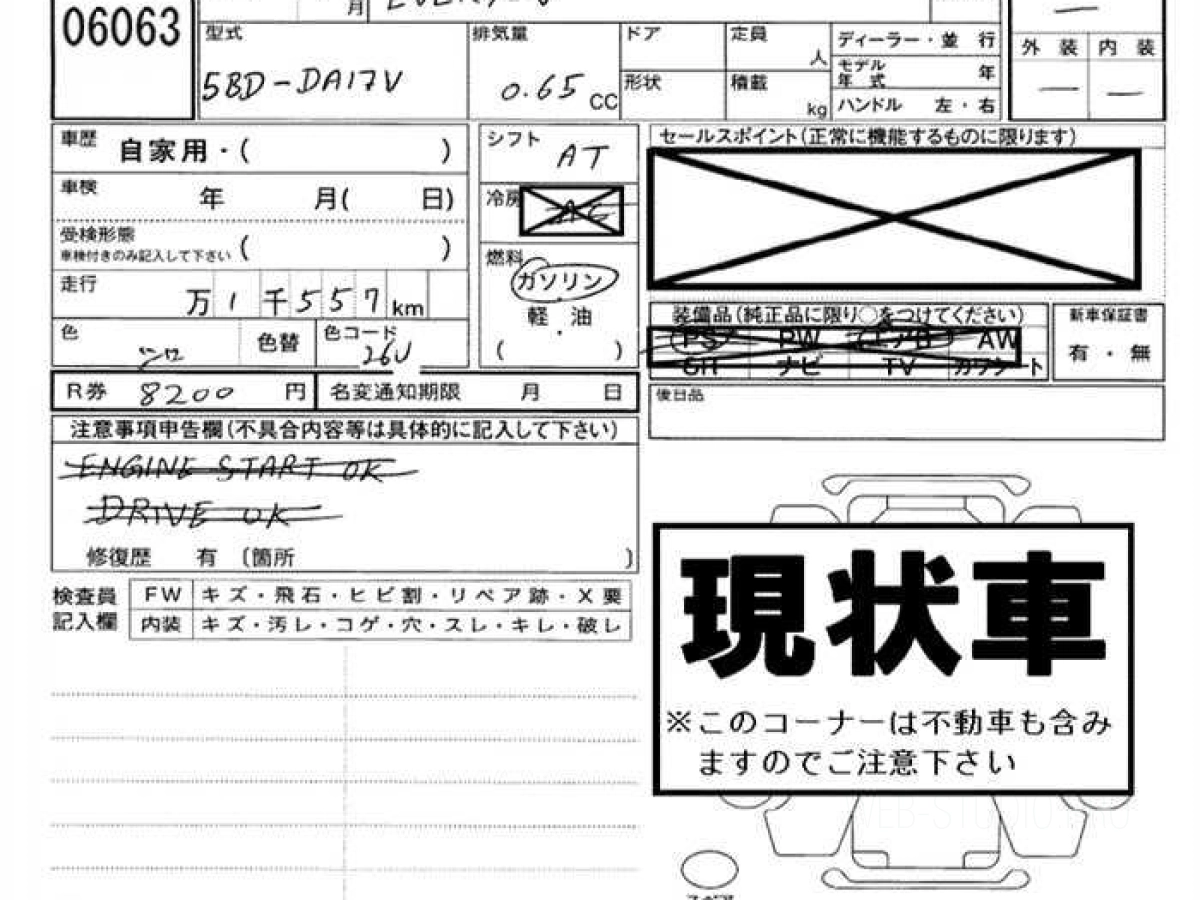 06063
月
型式 5BD-DA17V
排気量 0.65 CC
ドア
形状
定員 人
積載 kg
ディーラー・並 行
モデル年 式 年
ハンドル 左・右
外 装 内 装
— —
車歴 自家用・( )
車検 年 月( 日)
受検形態 ( )
車検付きのみ記入して下さい
走行 万 1 千 5 5 7 km
色 シロ 色替 色コード 26U
R券 8200 円 名変通知期限 月 日
シフト AT
冷房 AC
燃料
ガソリン
軽 ・ 油
( )
セールスポイント(正常に機能するものに限ります)
装備品(純正品に限り○をつけてください)
PS PW エアB AW
SH ナビ TV カワシート
新車保証書
有 ・ 無
後日品
注意事項申告欄(不具合内容等は具体的に記入して下さい)
ENGINE START OK
DRIVE OK
修復歴 有 〔箇所 〕
検査員記入欄
FW キズ・飛石・ヒビ割・リペア跡・X要
内装 キズ・汚レ・コゲ・穴・スレ・キレ・破レ
現状車
※このコーナーは不動車も含み
ますのでご注意下さい